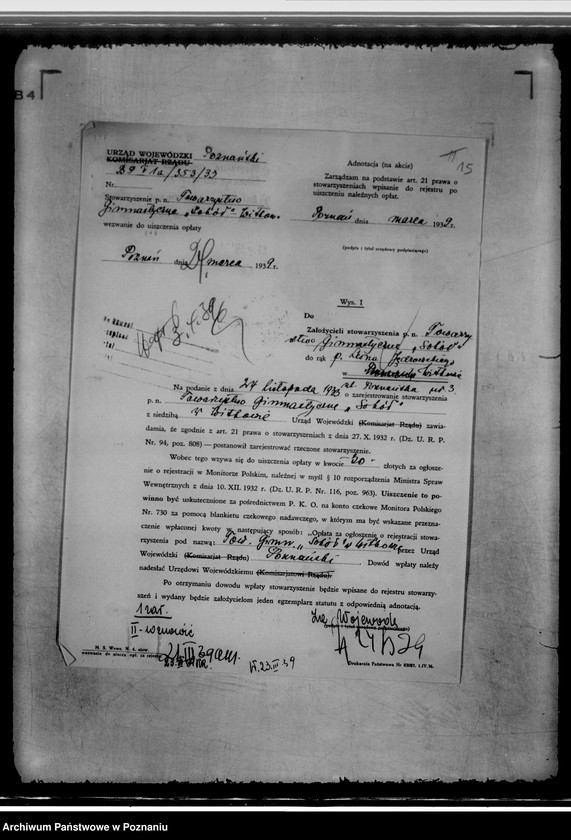 B4
URZĄD WOJEWÓDZKI Poznański
KOMISARJAT RZĄDU
Nr.
Stowarzyszenie p. n. Towarzystwo
Gimnastyczne „Sokół" Witkowo
wezwanie do uiszczenia opłaty
Poznań dnia marca 1939 r.
Adnotacja (na akcie)
15
Zarządzam na podstawie art. 21 prawa o
stowarzyszeniach wpisanie do rejestru po
uiszczeniu należnych opłat.
Poznań dnia marca 1939 r.
(podpis i tytuł urzędowy podpisującego)
Wys. 1
Do
Założycieli stowarzyszenia p. n. Towarzy
stwo Gimnastyczne „Sokół"
do rąk p. Leona
w Witkowie
ul. Poznańska nr. 3
Na podanie z dnia 24 listopada o zarejestrowanie stowarzyszenia
p. n. Towarzystwo Gimnastyczne „Sokół"
z siedzibą w Witkowie Urząd Wojewódzki (Komisarjat Rządu) zawia-
damia, że zgodnie z art. 21 prawa o stowarzyszeniach z dnia 27. X. 1932 r. (Dz. U. R. P.
Nr. 94, poz. 808) — postanowił zarejestrować rzeczone stowarzyszenie.
Wobec tego wzywa się do uiszczenia opłaty w kwocie 20 złotych za ogłosze-
nie o rejestracji w Monitorze Polskim, należnej w myśl § 10 rozporządzenia Ministra Spraw
Wewnętrznych z dnia 10. XII. 1932 r. (Dz. U. R. P. Nr. 116, poz. 963). Uiszczenie to po-
winno być uskutecznione za pośrednictwem P. K. O. na konto czekowe Monitora Polskiego
Nr. 730 za pomocą blankietu czekowego nadawczego, w którym ma być wskazane przezna-
czenie wpłaconej kwoty w następujący sposób: „Opłata za ogłoszenie o rejestracji stowa-
rzyszenia pod nazwą: Tow. Gimn. „Sokół" w Witkowie przez Urząd
Wojewódzki (Komisarjat Rządu) Poznański. Dowód wpłaty należy
nadesłać Urzędowi Wojewódzkiemu (Komisarjatowi Rządu).
Po otrzymaniu dowodu wpłaty stowarzyszenie będzie wpisane do rejestru stowarzy-
szeń i wydany będzie założycielom jeden egzemplarz statutu z odpowiednią adnotacją.
1 zał.
Za Wojewodę
Drukarnia Państwowa Nr
Archiwum Państwowe w Poznaniu